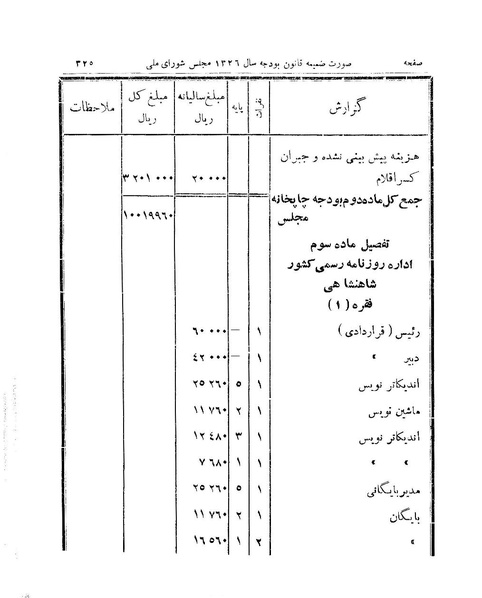 صفحه صورت ضمیمه قانون بودجه سال ۱۳۲۶ مجلس شورای ملی ۳۲۵
گزارش نفرات پایه مبلغ سالیانه ریال مبلغ کل ریال ملاحظات
هزینه پیش بینی نشده و جبران
کسر اقلام ۲۰ ۰۰۰ ۳ ۲۰۱ ۰۰۰
جمع کل ماده دوم بودجه چاپخانه
مجلس ۱۰۰۱۹۹۶۰
تفصیل ماده سوم
اداره روزنامه رسمی کشور
شاهنشاهی
فقره (۱)
رئیس (قراردادی) ۱ — ۶۰ ۰۰۰
دبیر » ۱ — ۴۲ ۰۰۰
اندیکاتر نویس ۱ ۵ ۲۵ ۲۶۰
ماشین نویس ۱ ۲ ۱۱ ۷۶۰
اندیکاتر نویس ۱ ۳ ۱۲ ٤۸۰
» » ۱ ۱ ۷ ۶۸۰
مدیر بایگانی ۱ ۵ ۲۵ ۲۶۰
بایگان ۱ ۲ ۱۱ ۷۶۰
» ۲ ۱ ۱۶ ۵۶۰